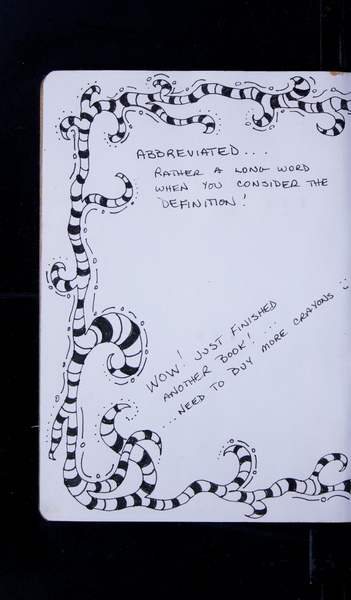 ABBREVIATED...
RATHER A LONG WORD
WHEN YOU CONSIDER THE
DEFINITION!
WOW! JUST FINISHED
ANOTHER BOOK! ...
...NEED TO BUY MORE CRAYONS :)